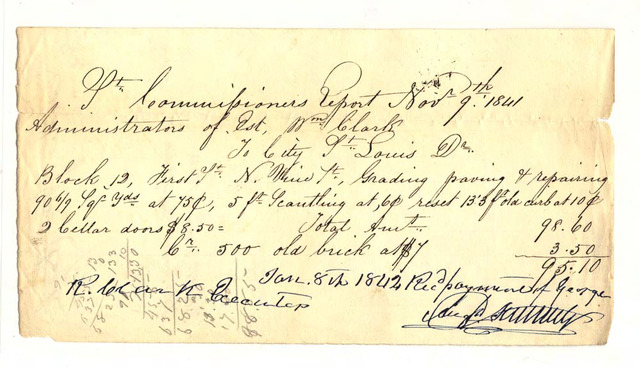 St. Commissioners Report Nov. 9th 1841
Administrators of Est. Wm Clark
To City St Louis Dr.
Block 12, First St. N. Vine St., Grading paving & repairing
90 6/9 Sqr Yds at 75¢, 5 ft Scantling at 6¢ reset 133 f old curb at 10¢
2 Cellar doors $8.50 = Total Amt. 98.60
Cr. 500 old brick at $7 3.50
95.10
Jan. 8th 1842 Recd payment of George
R. Clark Executor